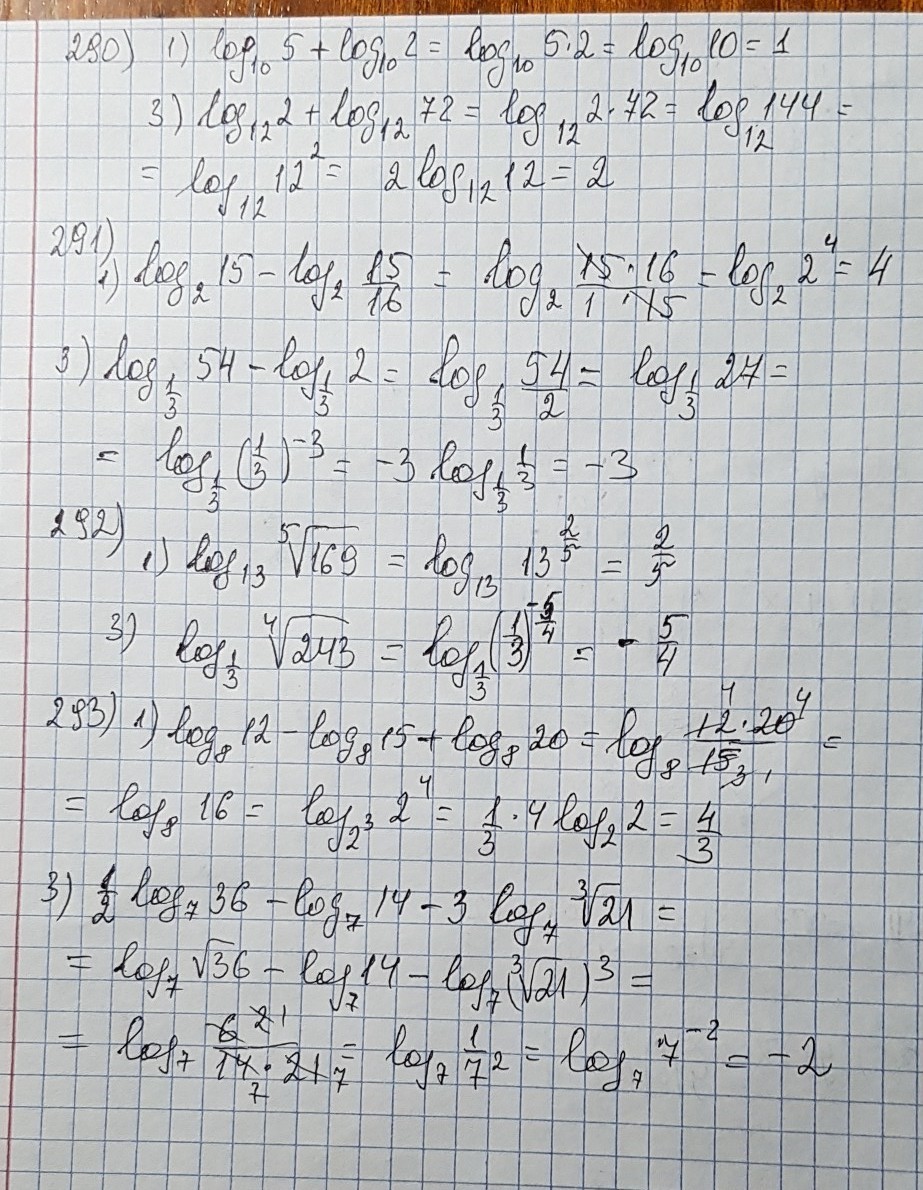 290) 1) log₁₀ 5 + log₁₀ 2 = log₁₀ 5·2 = log₁₀ 10 = 1
3) log₁₂ 2 + log₁₂ 72 = log₁₂ 2·72 = log₁₂ 144 =
= log₁₂ 12² = 2 log₁₂ 12 = 2
291)
1) log₂ 15 − log₂ 15/16 = log₂ (15·16)/(1·15) = log₂ 2⁴ = 4
3) log_{1/3} 54 − log_{1/3} 2 = log_{1/3} 54/2 = log_{1/3} 27 =
= log_{1/3} (1/3)⁻³ = −3 log_{1/3} 1/3 = −3
292)
1) log₁₃ ⁵√169 = log₁₃ 13^{2/5} = 2/5
3) log_{1/3} ⁴√243 = log_{1/3} (1/3)^{−5/4} = − 5/4
293) 1) log₈ 12 − log₈ 15 + log₈ 20 = log₈ (12·20)/15 =
= log₈ 16 = log_{2³} 2⁴ = 1/3 · 4 log₂ 2 = 4/3
3) 1/2 log₇ 36 − log₇ 14 − 3 log₇ ³√21 =
= log₇ √36 − log₇ 14 − log₇ (³√21)³ =
= log₇ 6/(14·21) = log₇ 1/7² = log₇ 7⁻² = −2